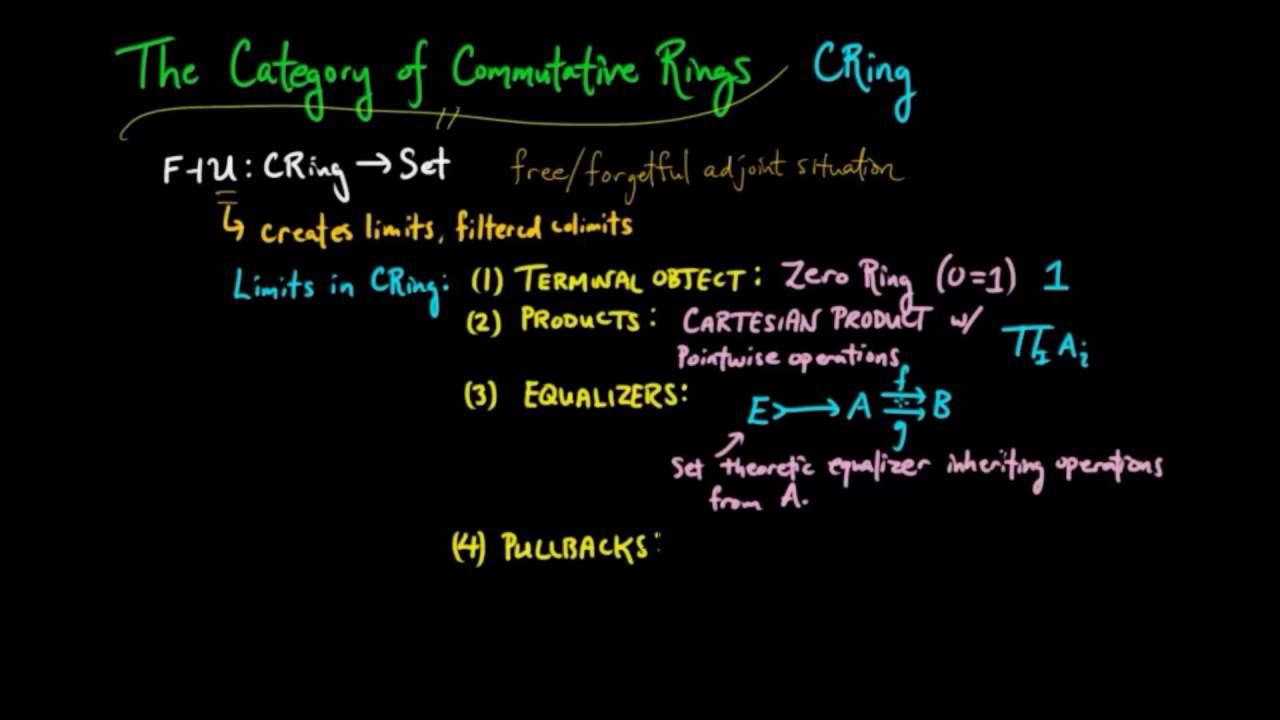 The Category of Commutative Rings CRing
F⊣U: CRing → Set free/forgetful adjoint situation
↳ creates limits, filtered colimits
Limits in CRing: (1) TERMINAL OBJECT: Zero Ring (0=1) 1
(2) PRODUCTS: CARTESIAN PRODUCT w/
Pointwise operations ∏_I A_i
(3) EQUALIZERS: E ↣ A ⇉ B
f
g
Set theoretic equalizer inheriting operations
from A.
(4) PULLBACKS: